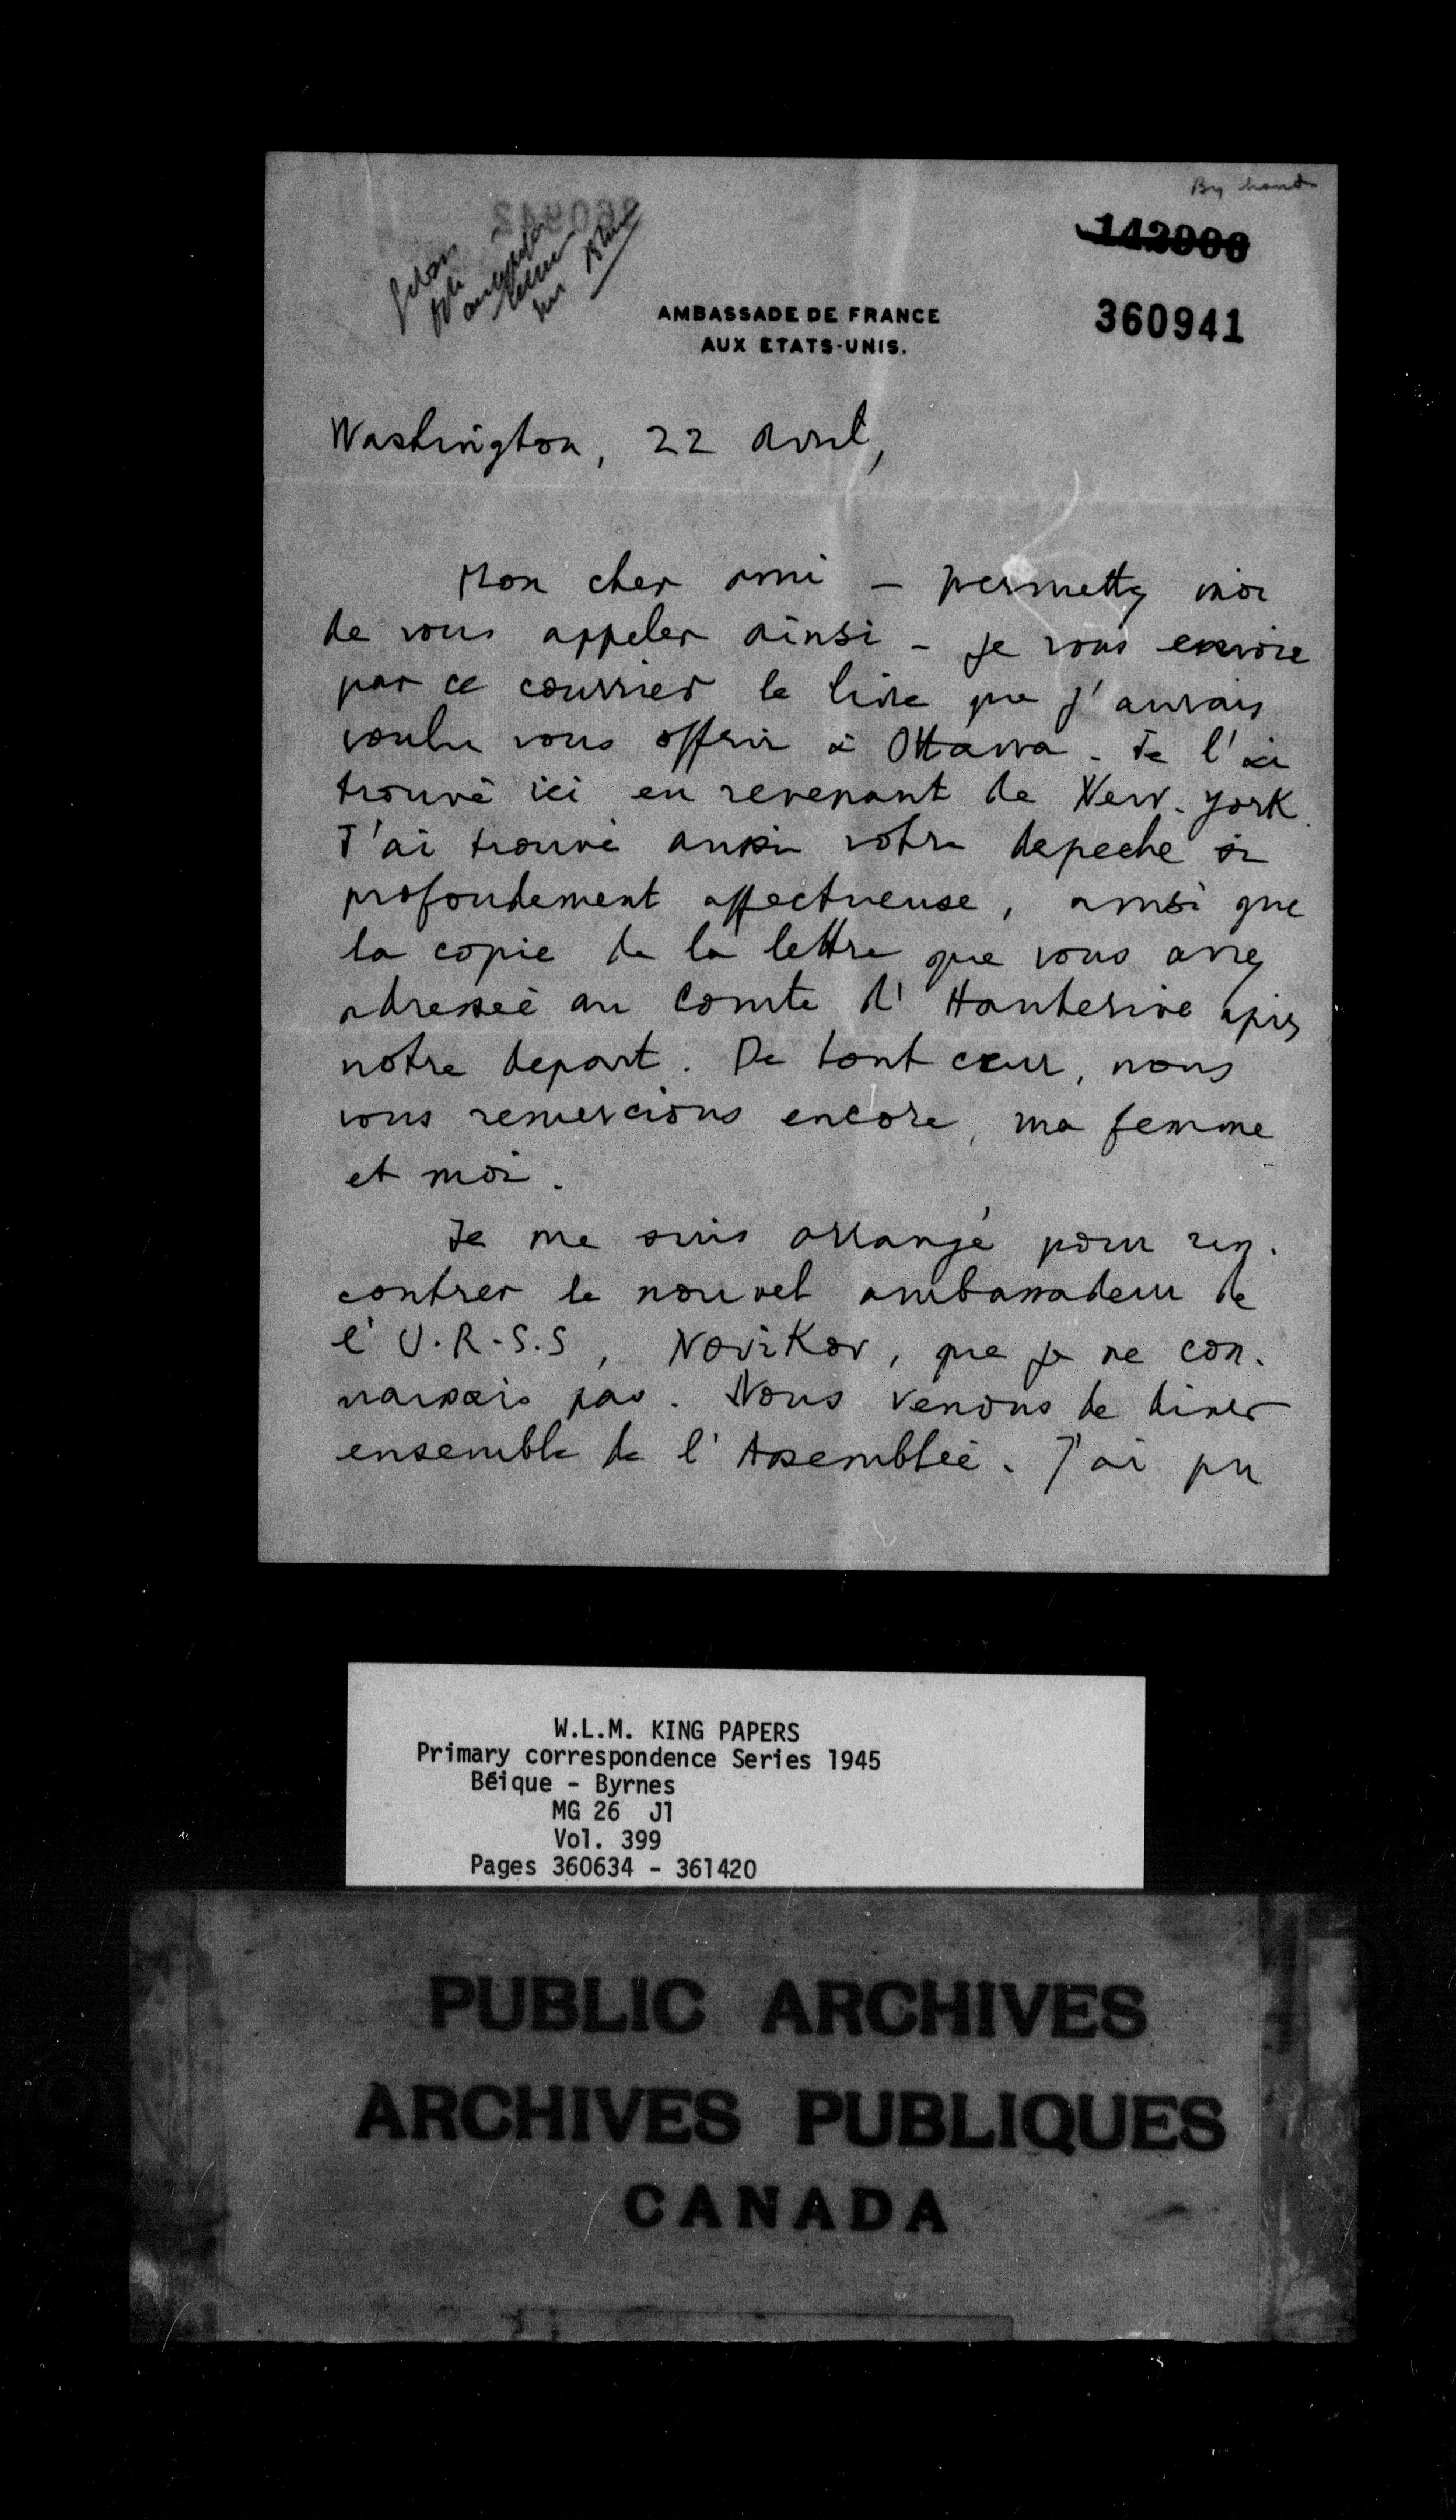 By hand
142906
360941
AMBASSADE DE FRANCE
AUX ETATS-UNIS.
Washington, 22 avril,
Mon cher ami – permettez moi
de vous appeler ainsi – je vous envoie
par ce courrier le livre que j'aurais
voulu vous offrir à Ottawa. Je l'ai
trouvé ici en revenant de New-York.
J'ai trouvé aussi votre depeche si
profondement affectueuse, ainsi que
la copie de la lettre que vous avez
adressée au Comte d'Hauterive après
notre depart. De tout cœur, nous
vous remercions encore, ma femme
et moi.
Je me suis arrangé pour ren-
contrer le nouvel ambassadeur de
l'U.R.S.S, Novikov, que je ne con-
naissais pas. Nous venons de diner
ensemble de l'Assemblée. J'ai pu
W.L.M. KING PAPERS
Primary correspondence Series 1945
Béique - Byrnes
MG 26 J1
Vol. 399
Pages 360634 - 361420
PUBLIC ARCHIVES
ARCHIVES PUBLIQUES
CANADA